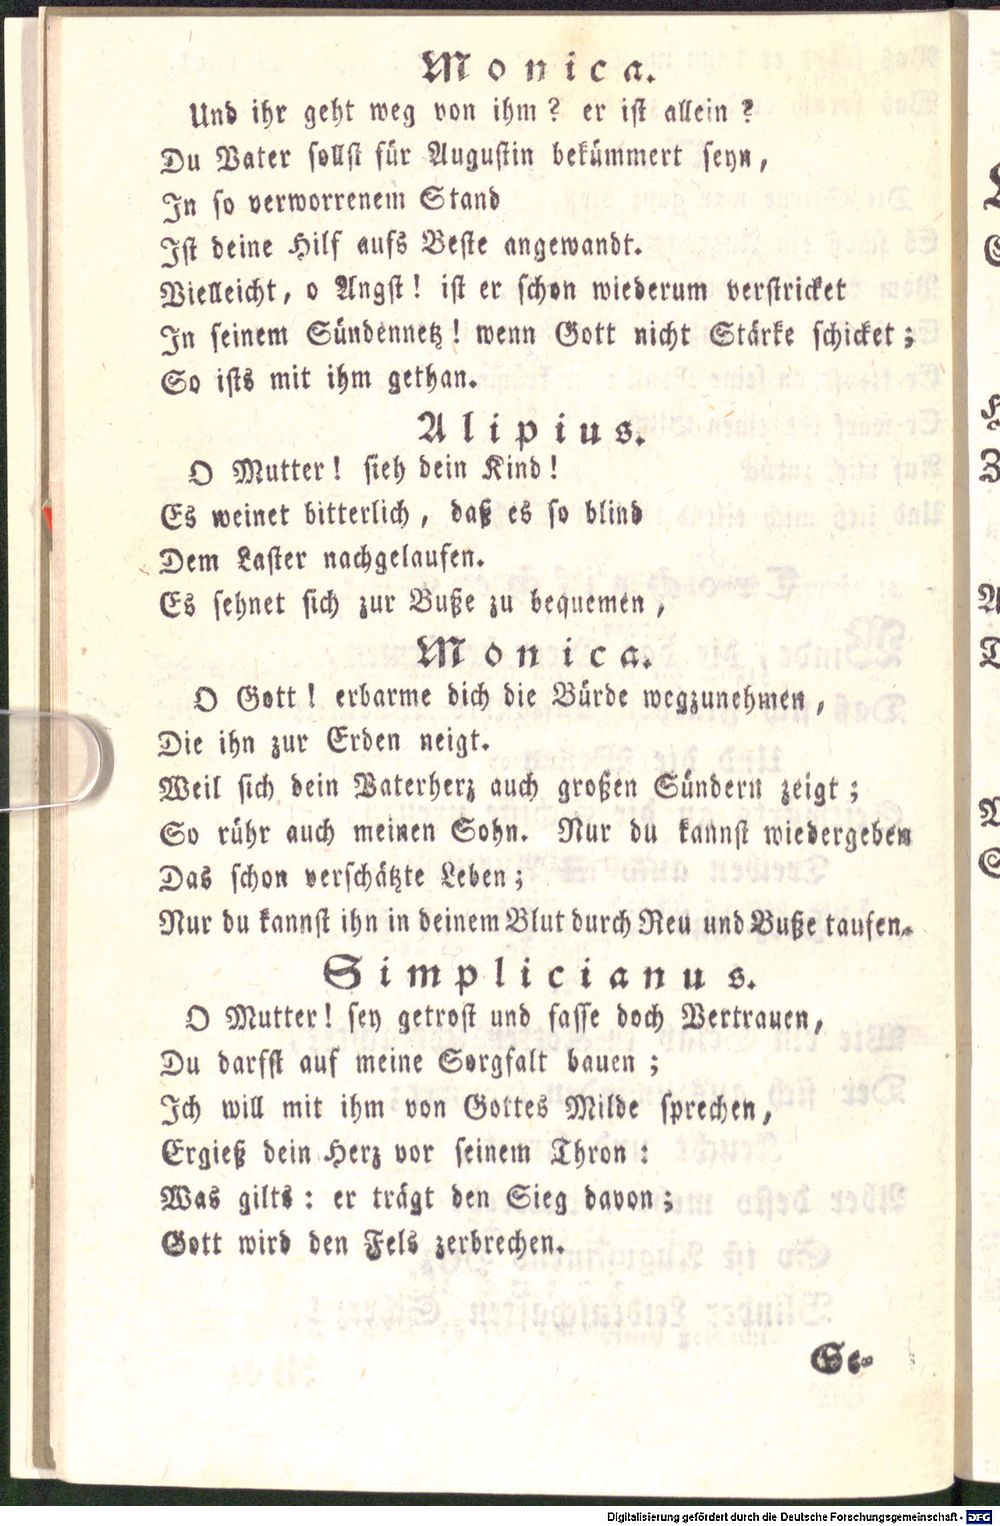 Monica.
Und ihr geht weg von ihm? er ist allein?
Du Vater sollst für Augustin bekümmert seyn,
In so verworrenem Stand
Ist deine Hilf aufs Beste angewandt.
Vielleicht, o Angst! ist er schon wiederum verstricket
In seinem Sündennetz! wenn Gott nicht Stärke schicket;
So ists mit ihm gethan.
Alipius.
O Mutter! sieh dein Kind!
Es weinet bitterlich, daß es so blind
Dem Laster nachgelaufen.
Es sehnet sich zur Buße zu bequemen,
Monica.
O Gott! erbarme dich die Bürde wegzunehmen,
Die ihn zur Erden neigt.
Weil sich dein Vaterherz auch großen Sündern zeigt;
So rühr auch meinen Sohn. Nur du kannst wiedergeben
Das schon verschätzte Leben;
Nur du kannst ihn in deinem Blut durch Reu und Buße taufen.
Simplicianus.
O Mutter! sey getrost und fasse doch Vertrauen,
Du darfst auf meine Sorgfalt bauen;
Ich will mit ihm von Gottes Milde sprechen,
Ergieß dein Herz vor seinem Thron:
Was gilts: er trägt den Sieg davon;
Gott wird den Fels zerbrechen.
Se-
Digitalisierung gefördert durch die Deutsche Forschungsgemeinschaft - DFG